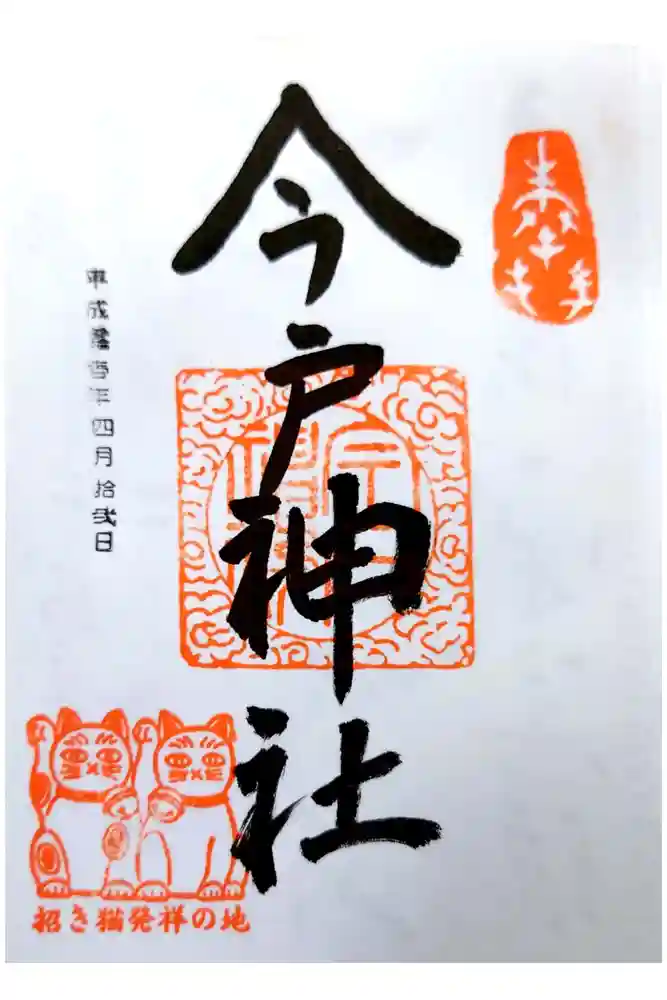 今戸神社
平成年四月拾弐日
招き猫発祥の地